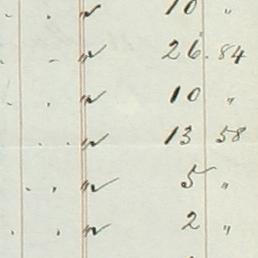 . . " 10 "
. . " 26.84
. . " 10 "
. . " 13 58
. . " 5 "
. . " 2 "